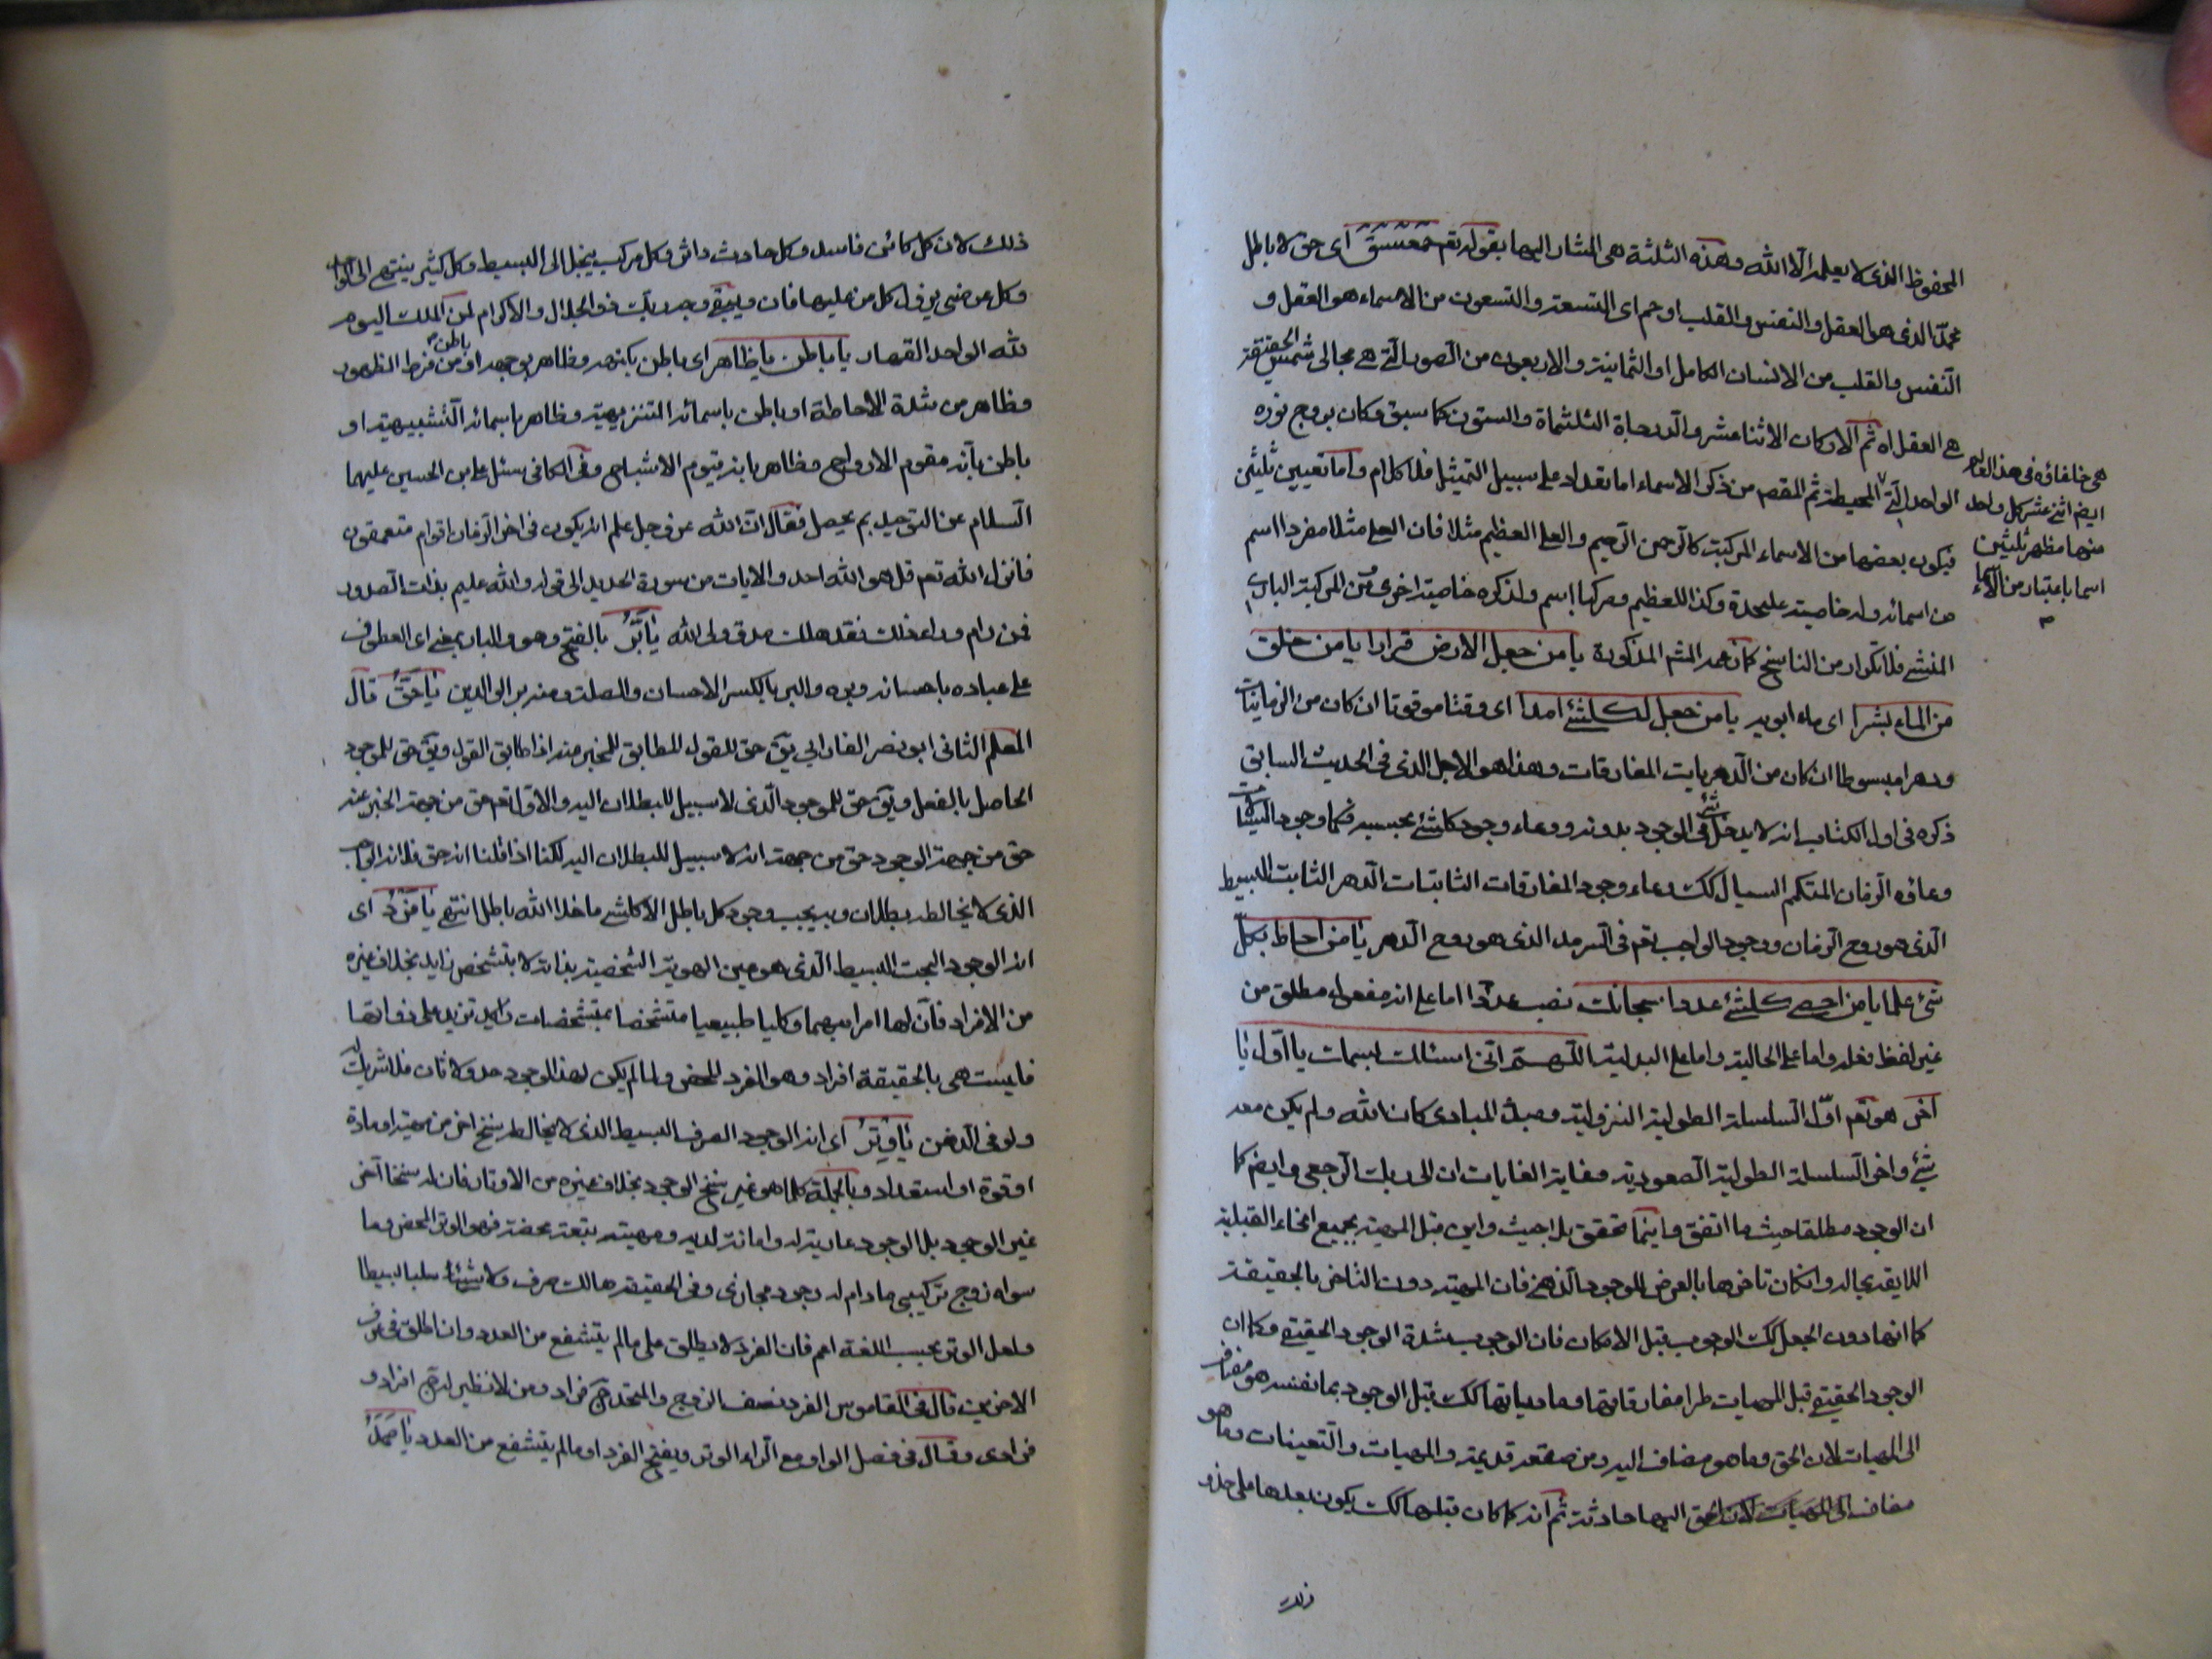 المحفوظ الذى لا يعلمه الا الله وهذه الثلثة هى المشار اليها بقوله تعم حمعسق اى حق لا باطل
محمد الذى هو العقل والنفس والقلب او حم اى التسعة والتسعون من الاسماء هو العقل و
النفس والقلب من الانسان الكامل او الثمانية والاربعون من الصور التى هى مجالى شمس الحقيقة
هى العقل اه ثم الاركان الاثنا عشر والدرجاة الثلثماة والستون كما سبق وكان بروج نوره
الواحد التى المحيطة ثم المقصر من ذكر الاسماء اما تعداد على سبيل التمثيل فلا كلام واما تعيين ثلثين
فيكون بعضها من الاسماء المركبة كالرحمن الرحيم والعلى العظيم مثلا فان العلى مثلا مفردا اسم
من اسمائه وله خاصية عليحدة وكذا للعظيم ومركبا اسم ولذكره خاصية اخرى ومن المركبة البارى
المنشى فلا تكرار من الناسخ كما المذكورة يا من جعل الارض قرارا يا من خلق
من الماء بشرا اى ماء ابويه يا من جعل لكلشئ امدا اى وقتا موقوتا ان كان من الزمانيات
ودهرا مبسوطا ان كان من الدهريات المفارقات وهذا هو الاجل الذى فى الحديث السابق
ذكره فى اول الكتاب انه لا يدخل شئ فى الوجود بدونه ووعاء وجود كلشئ بحسبه فكما وجود السيالات
وعاؤه الزمان المتكمم السيال كك وعاء وجود المفارقات الثابتات الدهر الثابت البسيط
الذى هو روح الزمان ووجود الواجب تعم فى السرمد الذى هو روح الدهر يا من احاط بكل
شئ علما يا من احصى كلشئ عددا سبحانك نصب عددا اما على انه مفعول مطلق من
غير لفظ فعله واما على الحالية واما على البدلية اللهم انى اسئلك باسمك يا اول يا
آخر هو تعم اول السلسلة الطولية النزولية ومبدء المبادى كان الله ولم يكن معه
شئ واخر السلسلة الطولية الصعودية وغاية الغايات ان الى ربك الرجعى وايضم كما
ان الوجود مطلقا حيث ما اتفق واينما تحقق بلا حيث واين قبل المهية بجميع انحاء القبلية
اللايقة بحاله وان كان تاخرها بالعرض للوجود الذهنى فان المهية دون التاخر بالحقيقة
كما انها دون الجعل كك الوجوب قبل الامكان فان الوجوب شدة الوجود الحقيقى وكما ان
الوجود الحقيقى قبل المهيات طرا مفارقاتها ومادياتها كك قبل الوجود بما نفسه هو مضاف
الى المهيات لان الحق وما هو مضاف اليه ومن صقعه قديمة والمهيات والتعينات وما هو
مضاف اليها حادثة ثم انه كما كان قبلها كك يكون بعدها على حذو
ذلك
هى خلفاؤه فى هذا العالم
ايضم اثنى عشر كل واحد
منها مظهر ثلثين
اسما باعتبار من الائها
م
ذلك لان كل كائن فاسد وكل حادث داثر وكل مركب ينحل الى البسيط وكل كثير ينتهى الى الواحد
وكل عرضى يزول كل من عليها فان ويبقى وجه ربك ذو الجلال والاكرام لمن الملك اليوم
لله الواحد القهار يا باطن يا ظاهر اى باطن بكنهه وظاهر بوجهه او باطن من فرط الظهور
وظاهر من شدة الاحاطة او باطن باسمائه التنزيهية وظاهر باسمائه التشبيهية او
باطن بانه مقوم الارواح وظاهر بانه قيوم الاشباح وفى الكافى سئل على بن الحسين عليهما
السلام عن التوحيد بم يحصل فقال ان الله عز وجل علم انه يكون فى اخر الزمان اقوام متعمقون
فانزل الله تعم قل هو الله احد والايات من سورة الحديد الى قوله والله عليم بذات الصدور
فمن رام وراء ذلك فقد هلك صدق ولى الله يا بر بالفتح وهو والبار بمعنى اى العطوف
على عباده باحسانه وبره والبر بالكسر الاحسان والصلة ومنه بر الوالدين يا حق قال
المعلم الثانى ابو نصر الفارابى يق حق للقول المطابق للمخبر عنه اذا طابق القول ويق حق للموجود
الحاصل بالفعل ويق حق للموجود الذى لا سبيل للبطلان اليه والاول تعم حق من جهة الخبر عنه
حق من جهة الوجود حق من جهة انه لا سبيل للبطلان اليه لكنا اذا قلنا انه حق فلانه الواجب
الذى لا يخالطه بطلان وبه يجب وجود كل باطل الا كلشئ ما خلا الله باطل انتهى يا فرد اى
انه الوجود البحت البسيط الذى هو عين الهوية الشخصية بذاته لا بتشخص زايد بخلاف غيره
من الافراد فان لها امرا مبهما وكليا طبيعيا متشخصا بمتشخصات تزيد على ذواتها
فليست هى بالحقيقة افراد وهو الفرد المحض ولما لم يكن لهذا الوجود حد ولا ثان فلا شريك له
ولو فى الذهن يا وتر اى انه الوجود الصرف البسيط الذى لا يخالطه سنخ اخر من مهية او مادة
او قوة او استعداد وبالجملة كلما هو غير سنخ الوجود بخلاف غيره من الاوتار فان له سنخا آخر
غير الوجود بل الوجود عارية له وامانة لديه ومهيته بتعته محضة فهو الوتر المحض وما
سواه زوج تركيبى ما دام له وجود مجازى وفى الحقيقة هالك صرف ولا شيئا سلبا بسيطا
ولعل الوتر بحسب اللغة اعم فان الفرد لا يطلق على ما لم يتشفع من العدد وان اطلق فى عرف
الاخرين قال فى القاموس الفرد نصف الزوج والمتحد ج فراد ومن لا نظير له ج افراد و
فرادى وقال فى فصل الواو مع الراء الوتر ويفتح الفرد او ما لم يتشفع من العدد يا صمد